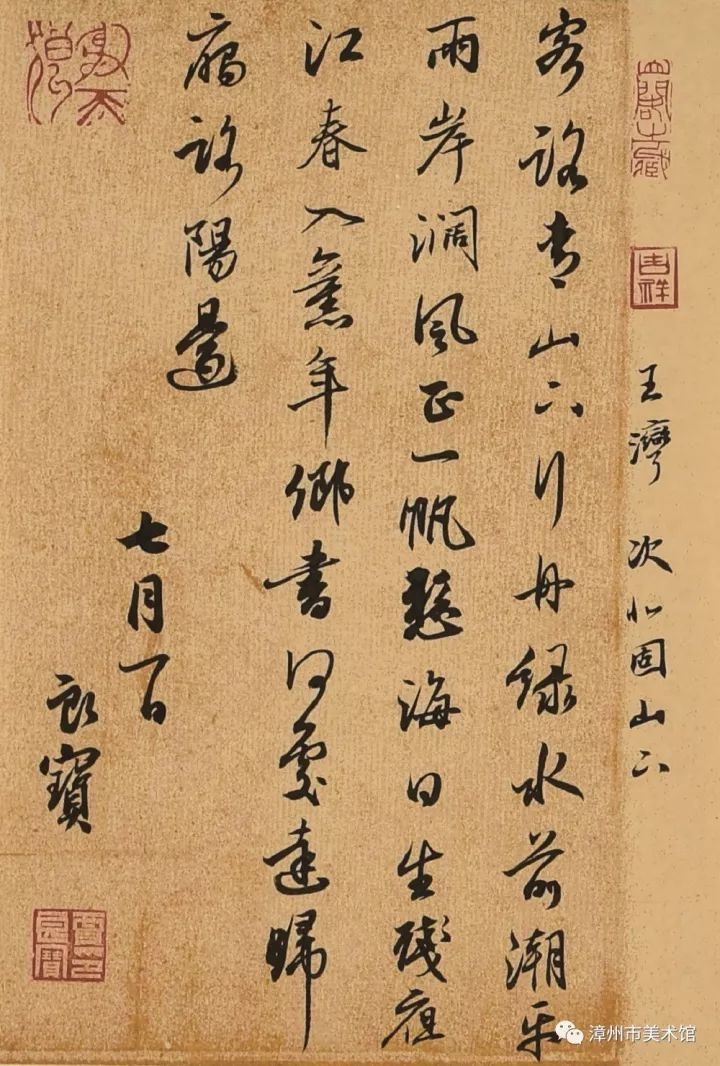 王灣 次北固山下
客路青山下行舟綠水前潮平
兩岸濶風正一帆懸海日生殘夜
江春入舊年鄉書何處達歸
雁洛陽邊
七月一日
良寶
吉祥
漳州市美术馆